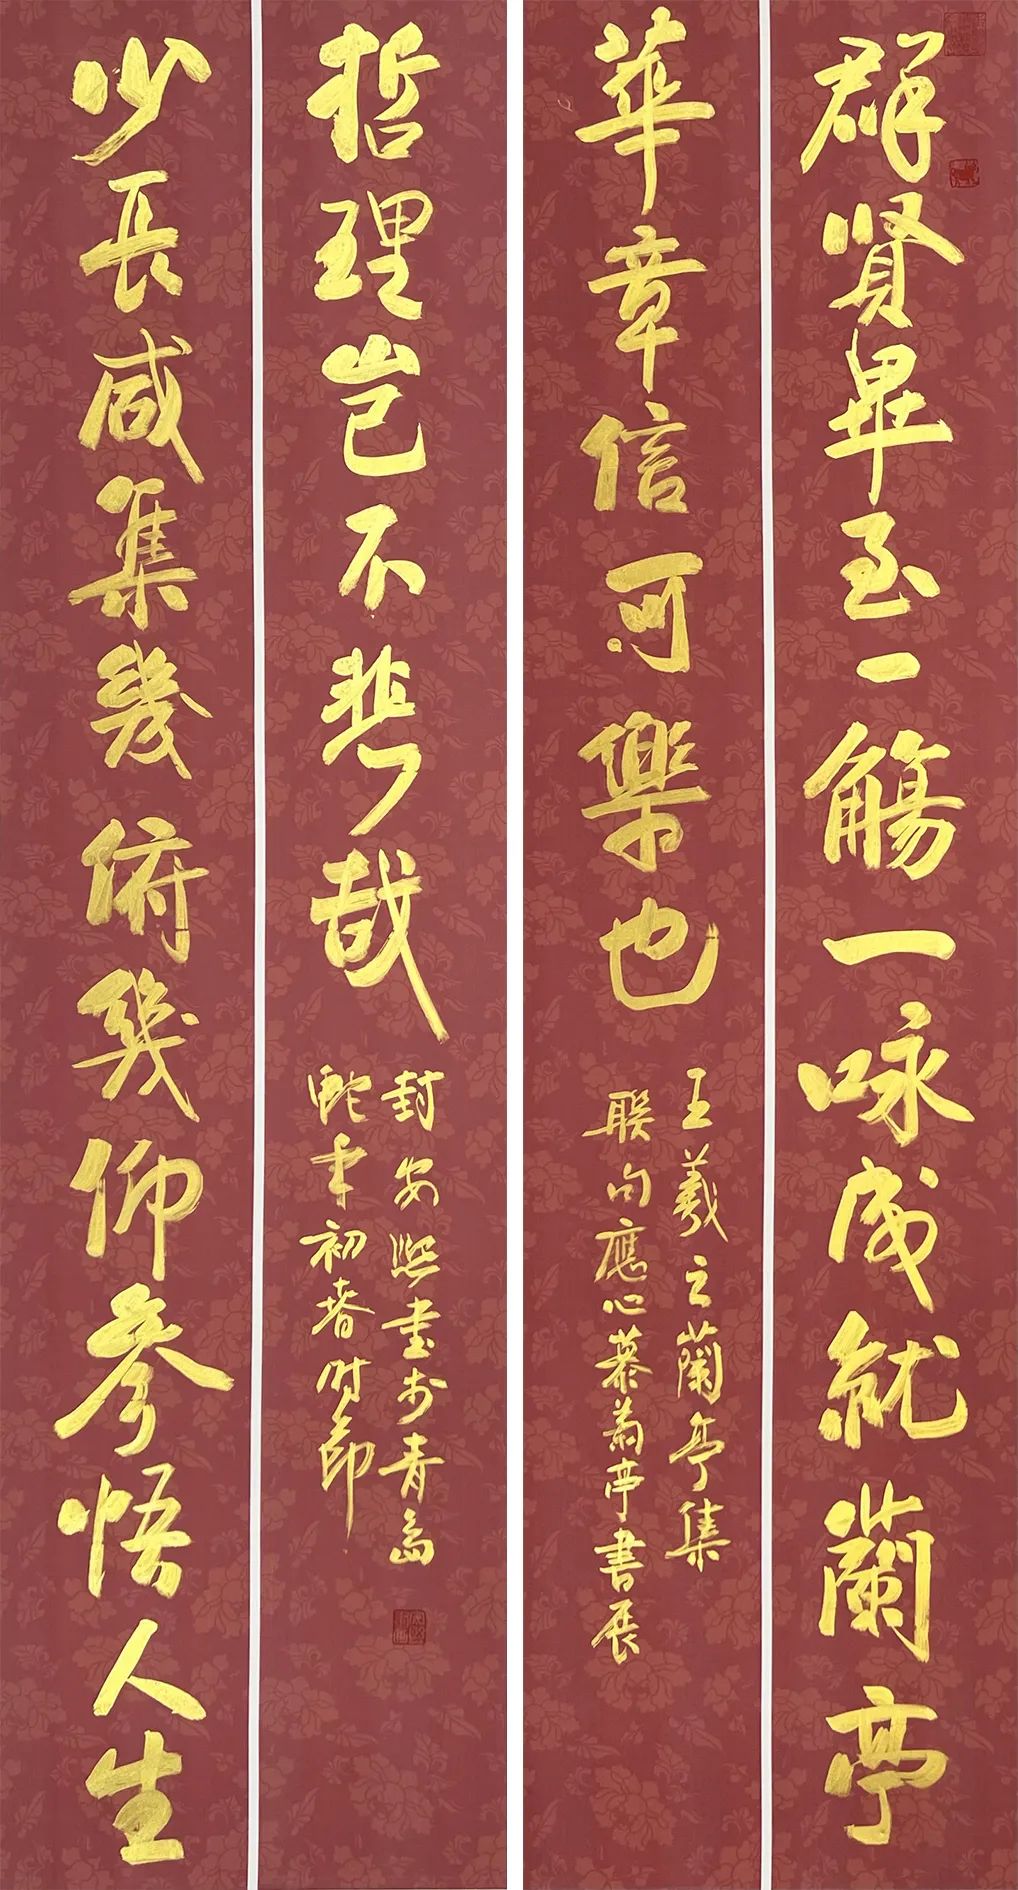 群贤畢至一觴一咏成就蘭亭
華章信可樂也
王羲之蘭亭集
聯句應心慕蘭亭書展
少長咸集幾俯幾仰參悟人生
哲理岂不悲哉
封安熙書於青島
蛇年初春時節